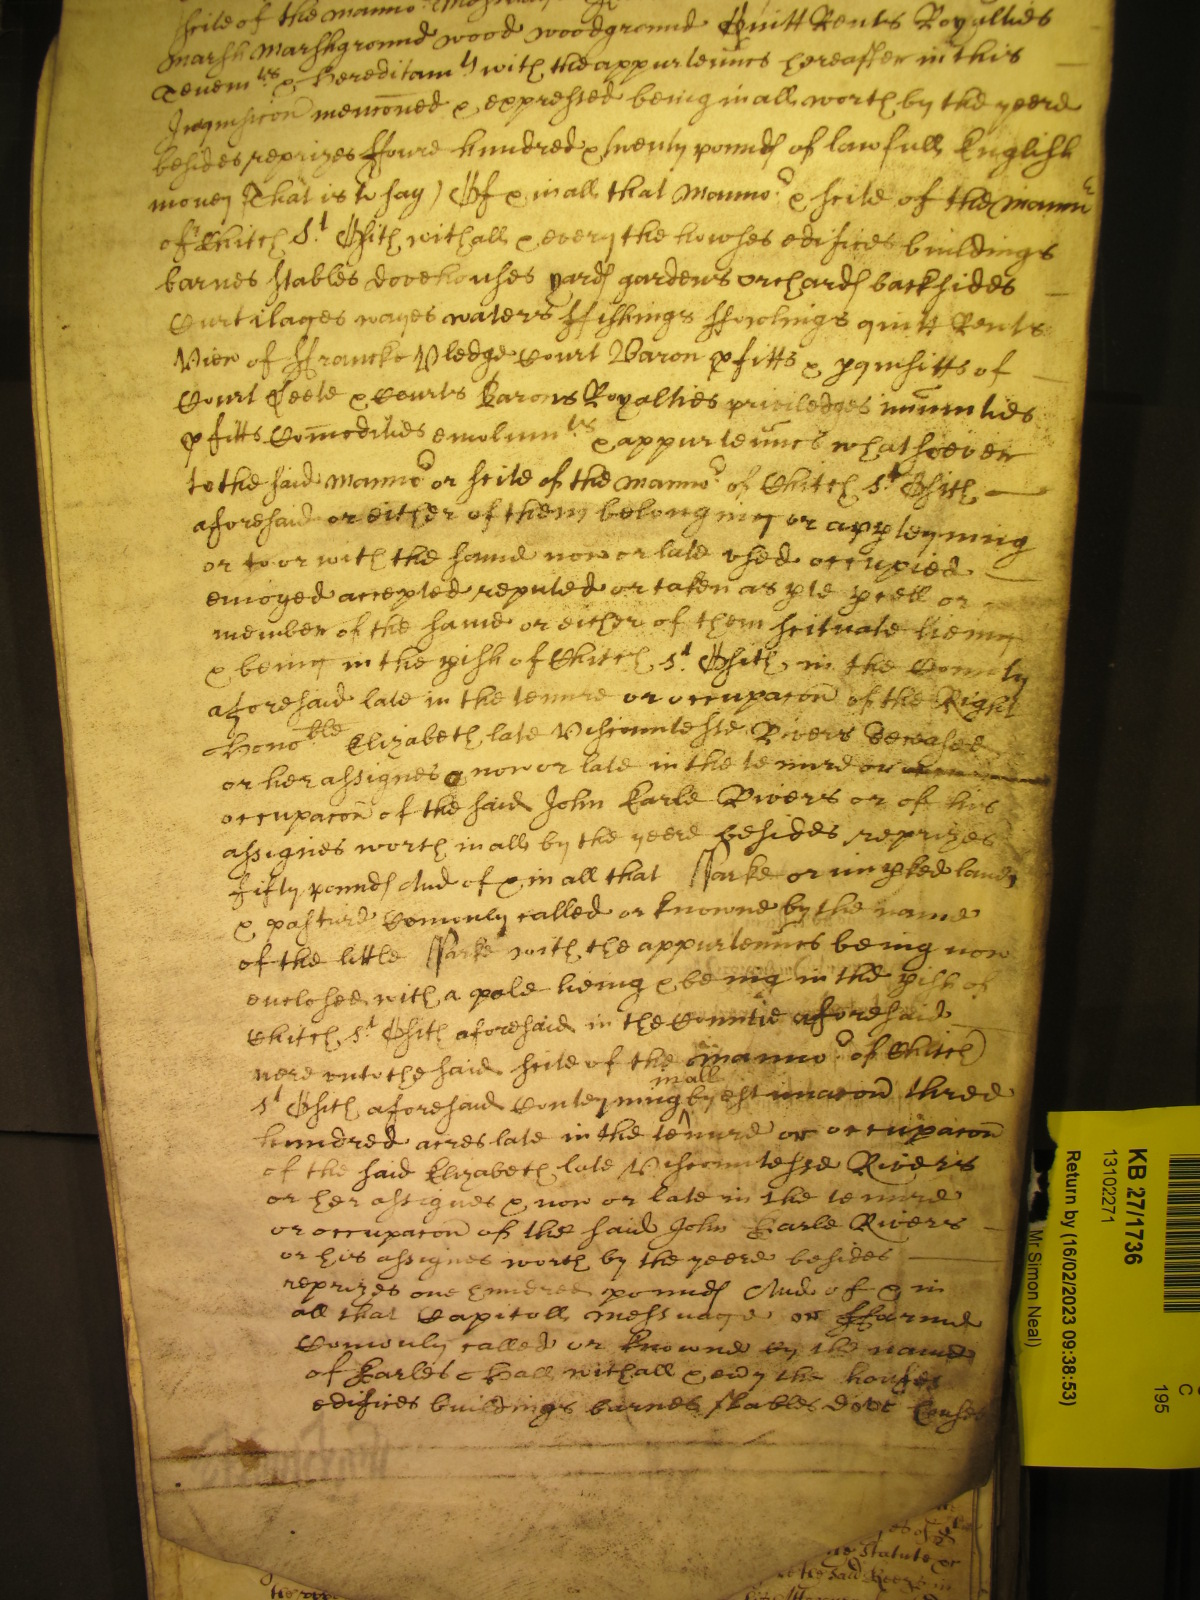 scite of the manno:r
marsh marshground wood woodground Quitt Rents Royalties
Tenem:ts & hereditam:ts with the appurtenncs hereafter in this
Inquisicon menconed & expressed being in all worth by the yeere
besides reprizes ffoure hundred & twenty pounds of lawfull English
money (That is to say) Of & in all that manno:r & scite of the manno:r
of Chich S:t Osith with all & every the howses edifices buildings
barnes stables dovehouses yards gardens orchards backsides
Curtilages wayes waters ffishings ffowlings quitt Rents
View of ffrancke Pledge Court Baron pfitts & pquisitts of
Court Leete & Courts Barons Royalties priviledges imunities
pfitts Comodities emolum:ts & appurtenncs whatsoever
to the said manno:r or scite of the manno:r of Chich S:t Osith
aforesaid or either of them belonging or apperteyning
or to or with the same now or late vsed occupied
enioyed accepted reputed or taken as pte pcell or
member of the same or either of them scituate lieing
& being in the pish of Chich S:t Osith in the County
aforesaid late in the tenure or occupacon of the Right
Hono:ble Elizabeth late Viscountesse Rivers deceased
or her assignes & now or late in the tenure or
occupacon of the said John Earle Rivers or of his
assignes worth in all by the yeere besides reprizes
fifty pounds And of & in all that Parke or impked lands
& pasture Comonly called or knowne by the name
of the little Parke with the appurtenncs being now
enclosed with a pale lieing & being in the pish of
Chich S:t Osith aforesaid in the Countie aforesaid
nere vnto the said scite of the manno:r of Chich
S:t Osith aforesaid Conteyning in all by estimacon three
hundred acres late in the tenure or occupacon
of the said Elizabeth late Viscountesse Rivers
or her assignes & now or late in the tenure
or occupacon of the said John Earle Rivers
or his assignes worth by the yeere besides
reprizes one hundred pounds And of & in
all that Capitall messuage or ffarme
Comonly called or knowne by the name
of Earles Hall with all & evy the houses
edifices buildings barnes stables dove houses
KB 27/1736
13102271
Return by (16/02/2023 09:38:53)
Mr Simon Neal)
C
195
statute
the said Rivers in